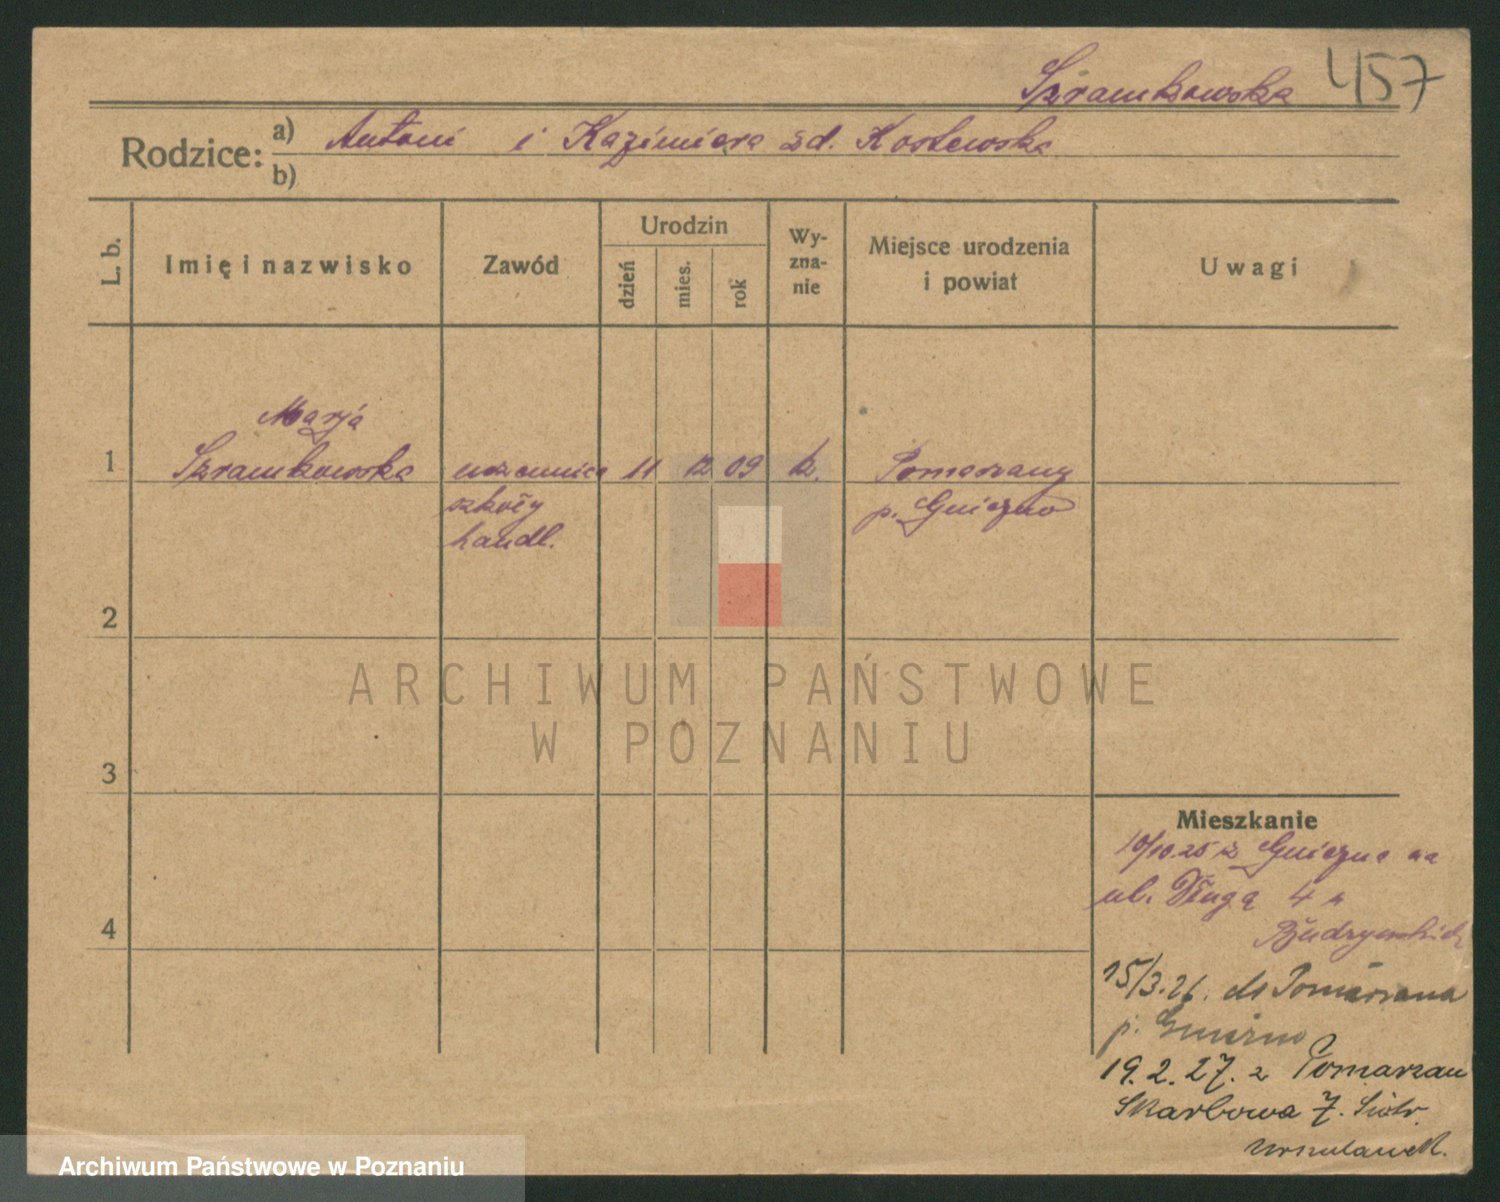 Szramkowska 457
Rodzice: a) Antoni i Kazimiera zd. Kostewska
b)
L. b.
Imię i nazwisko
Zawód
Urodzin
dzień
mies.
rok
Wy-
zna-
nie
Miejsce urodzenia
i powiat
Uwagi
Marja
1 Szramkowska uczennica 11 12 09 k. Pomarzany
szkoły p. Gniezno
handl.
2
3
4
ARCHIWUM PAŃSTWOWE
W POZNANIU
Mieszkanie
10/10.25 z Gniezna na
ul. Długą 4 u
15/3.26. do Pomarzana
p. Gniezno
19.2.27. z Pomarzan
Skarbowa 7. Siostr
Urszulanek.
Archiwum Państwowe w Poznaniu